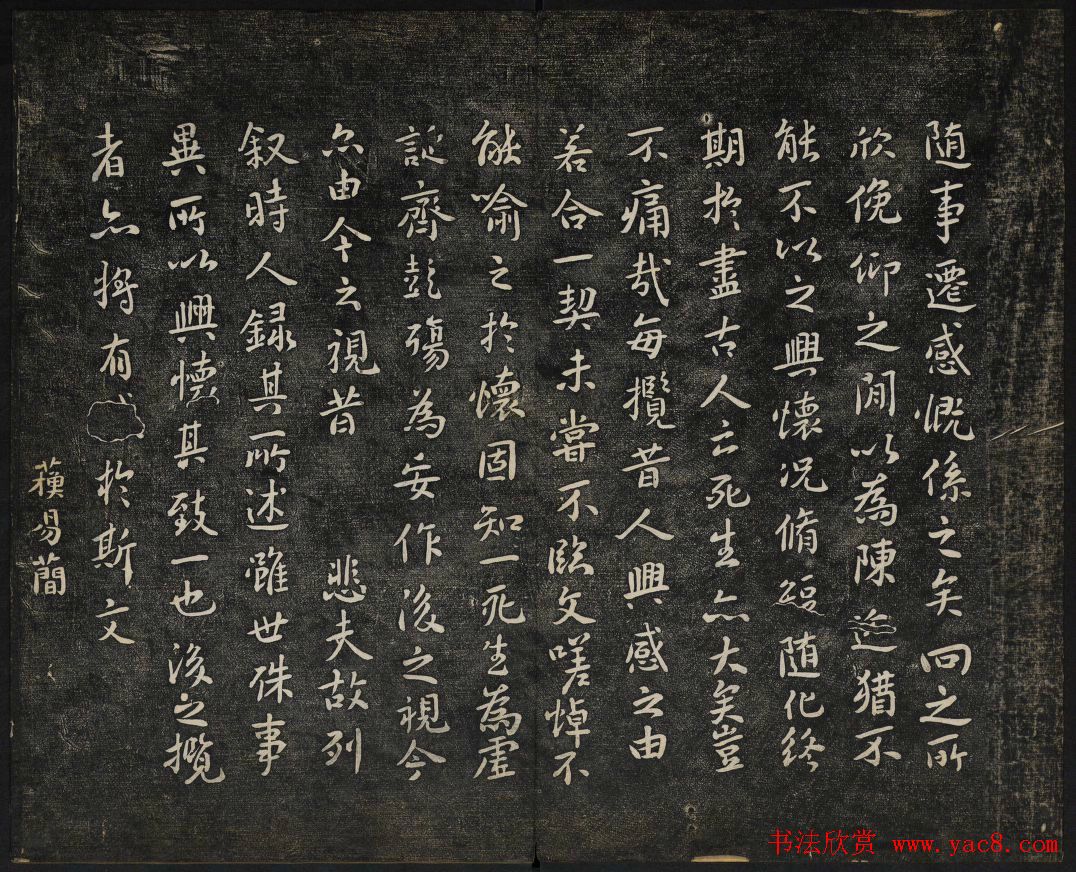 随事遷感慨係之矣向之所
欣俛仰之閒以為陳迹猶不
能不以之興懷况脩短随化終
期於盡古人云死生亦大矣豈
不痛哉每攬昔人興感之由
若合一契未嘗不臨文嗟悼不
能喻之於懷固知一死生為虛
誕齊彭殤為妄作後之視今
亦由今之視昔 悲夫故列
叙時人録其所述雖世殊事
異所以興懷其致一也後之攬
者亦將有於斯文
蘇易簡
书法欣赏 www.yac8.com